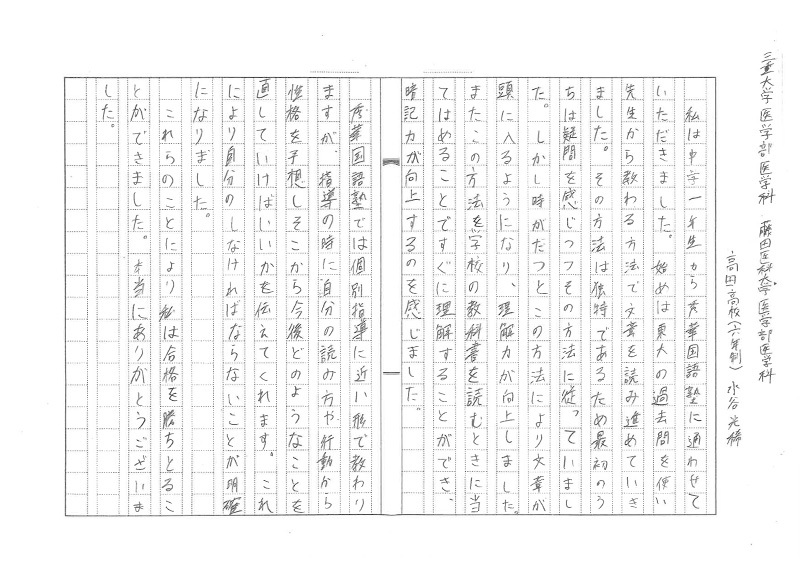 三重大学医学部医学科　藤田医科大学医学部医学科
高田高校（六年制）水谷光稀
私は中学一年生から秀華国語塾に通わせて
いただきました。始めは東大の過去問を使い
先生から教わる方法で文章を読み進めていき
ました。その方法は独特であるため最初のう
ちは疑問を感じつつその方法に従っていまし
た。しかし時がたつとこの方法により文章が
頭に入るようになり、理解力が向上しました。
またこの方法を学校の教科書を読むときに当
てはめることですぐに理解することができ、
暗記力が向上するのを感じました。
秀華国語塾では個別指導に近い形で教わり
ますが、指導の時に自分の読み方や行動から
性格を予想しそこから今後どのようなことを
直していけばいいかを伝えてくれます。これ
により自分のしなければならないことが明確
になりました。
これらのことにより私は合格を勝ちとるこ
とができました。本当にありがとうございま
した。